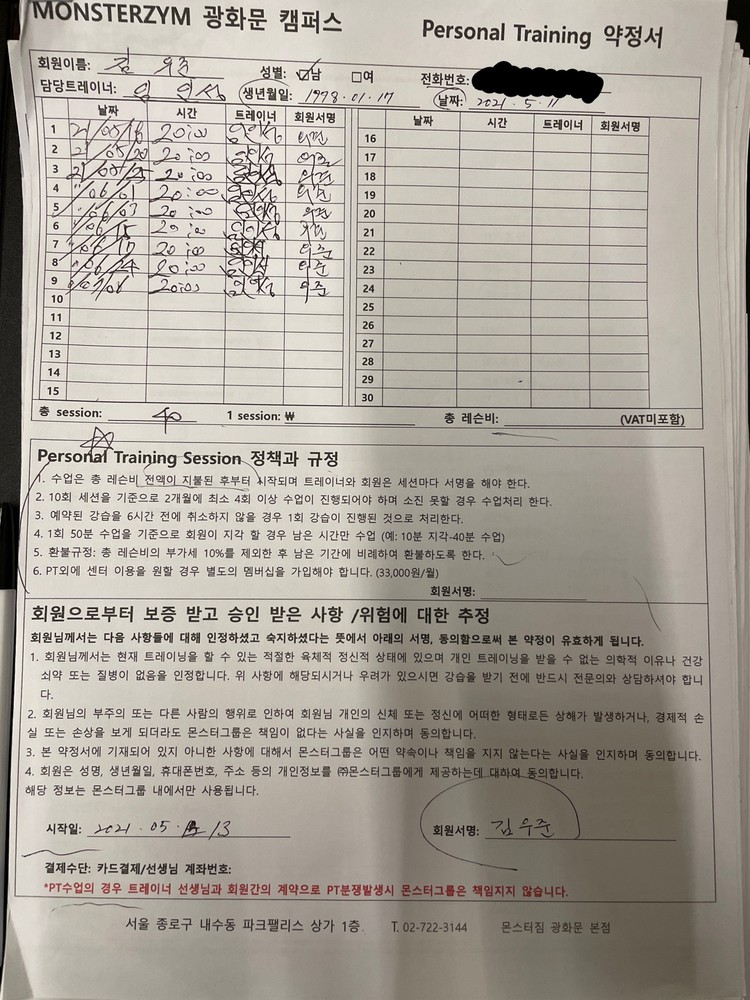 MONSTERZYM 광화문 캠퍼스
Personal Training 약정서
회원이름: 김우준 성별: ☑남 □여 전화번호:
담당트레이너: 임인성 생년월일: 1978.01.17 날짜: 2021.5.11
날짜 시간 트레이너 회원서명 날짜 시간 트레이너 회원서명
1 20:00 16
2 20:00 17
3 20:00 18
4 06/01 20:00 19
5 06/03 20:00 20
6 06/15 20:00 21
7 06/17 20:00 우준 22
8 06/24 20:00 우준 23
9 20:00 우준 24
10 25
11 26
12 27
13 28
14 29
15 30
총 session: 40 1 session: ₩ 총 레슨비: (VAT미포함)
Personal Training Session 정책과 규정
1. 수업은 총 레슨비 전액이 지불된 후부터 시작되며 트레이너와 회원은 세션마다 서명을 해야 한다.
2. 10회 세션을 기준으로 2개월에 최소 4회 이상 수업이 진행되어야 하며 소진 못할 경우 수업처리 한다.
3. 예약된 강습을 6시간 전에 취소하지 않을 경우 1회 강습이 진행된 것으로 처리한다.
4. 1회 50분 수업을 기준으로 회원이 지각 할 경우 남은 시간만 수업 (예: 10분 지각-40분 수업)
5. 환불규정: 총 레슨비의 부가세 10%를 제외한 후 남은 기간에 비례하여 환불하도록 한다.
6. PT외에 센터 이용을 원할 경우 별도의 멤버십을 가입해야 합니다. (33,000원/월)
회원서명:
회원으로부터 보증 받고 승인 받은 사항 /위험에 대한 추정
회원님께서는 다음 사항들에 대해 인정하셨고 숙지하셨다는 뜻에서 아래의 서명, 동의함으로써 본 약정이 유효하게 됩니다.
1. 회원님께서는 현재 트레이닝을 할 수 있는 적절한 육체적 정신적 상태에 있으며 개인 트레이닝을 받을 수 없는 의학적 이유나 건강
쇠약 또는 질병이 없음을 인정합니다. 위 사항에 해당되시거나 우려가 있으시면 강습을 받기 전에 반드시 전문의와 상담하셔야 합니
다.
2. 회원님의 부주의 또는 다른 사람의 행위로 인하여 회원님 개인의 신체 또는 정신에 어떠한 형태로든 상해가 발생하거나, 경제적 손
실 또는 손상을 보게 되더라도 몬스터그룹은 책임이 없다는 사실을 인지하며 동의합니다.
3. 본 약정서에 기재되어 있지 아니한 사항에 대해서 몬스터그룹은 어떤 약속이나 책임을 지지 않는다는 사실을 인지하며 동의합니다.
4. 회원은 성명, 생년월일, 휴대폰번호, 주소 등의 개인정보를 ㈜몬스터그룹에게 제공하는데 대하여 동의합니다.
해당 정보는 몬스터그룹 내에서만 사용됩니다.
시작일: 2021.05.13 회원서명: 김우준
결제수단: 카드결제/선생님 계좌번호:
*PT수업의 경우 트레이너 선생님과 회원간의 계약으로 PT분쟁발생시 몬스터그룹은 책임지지 않습니다.
서울 종로구 내수동 파크팰리스 상가 1층 T. 02-722-3144 몬스터짐 광화문 본점